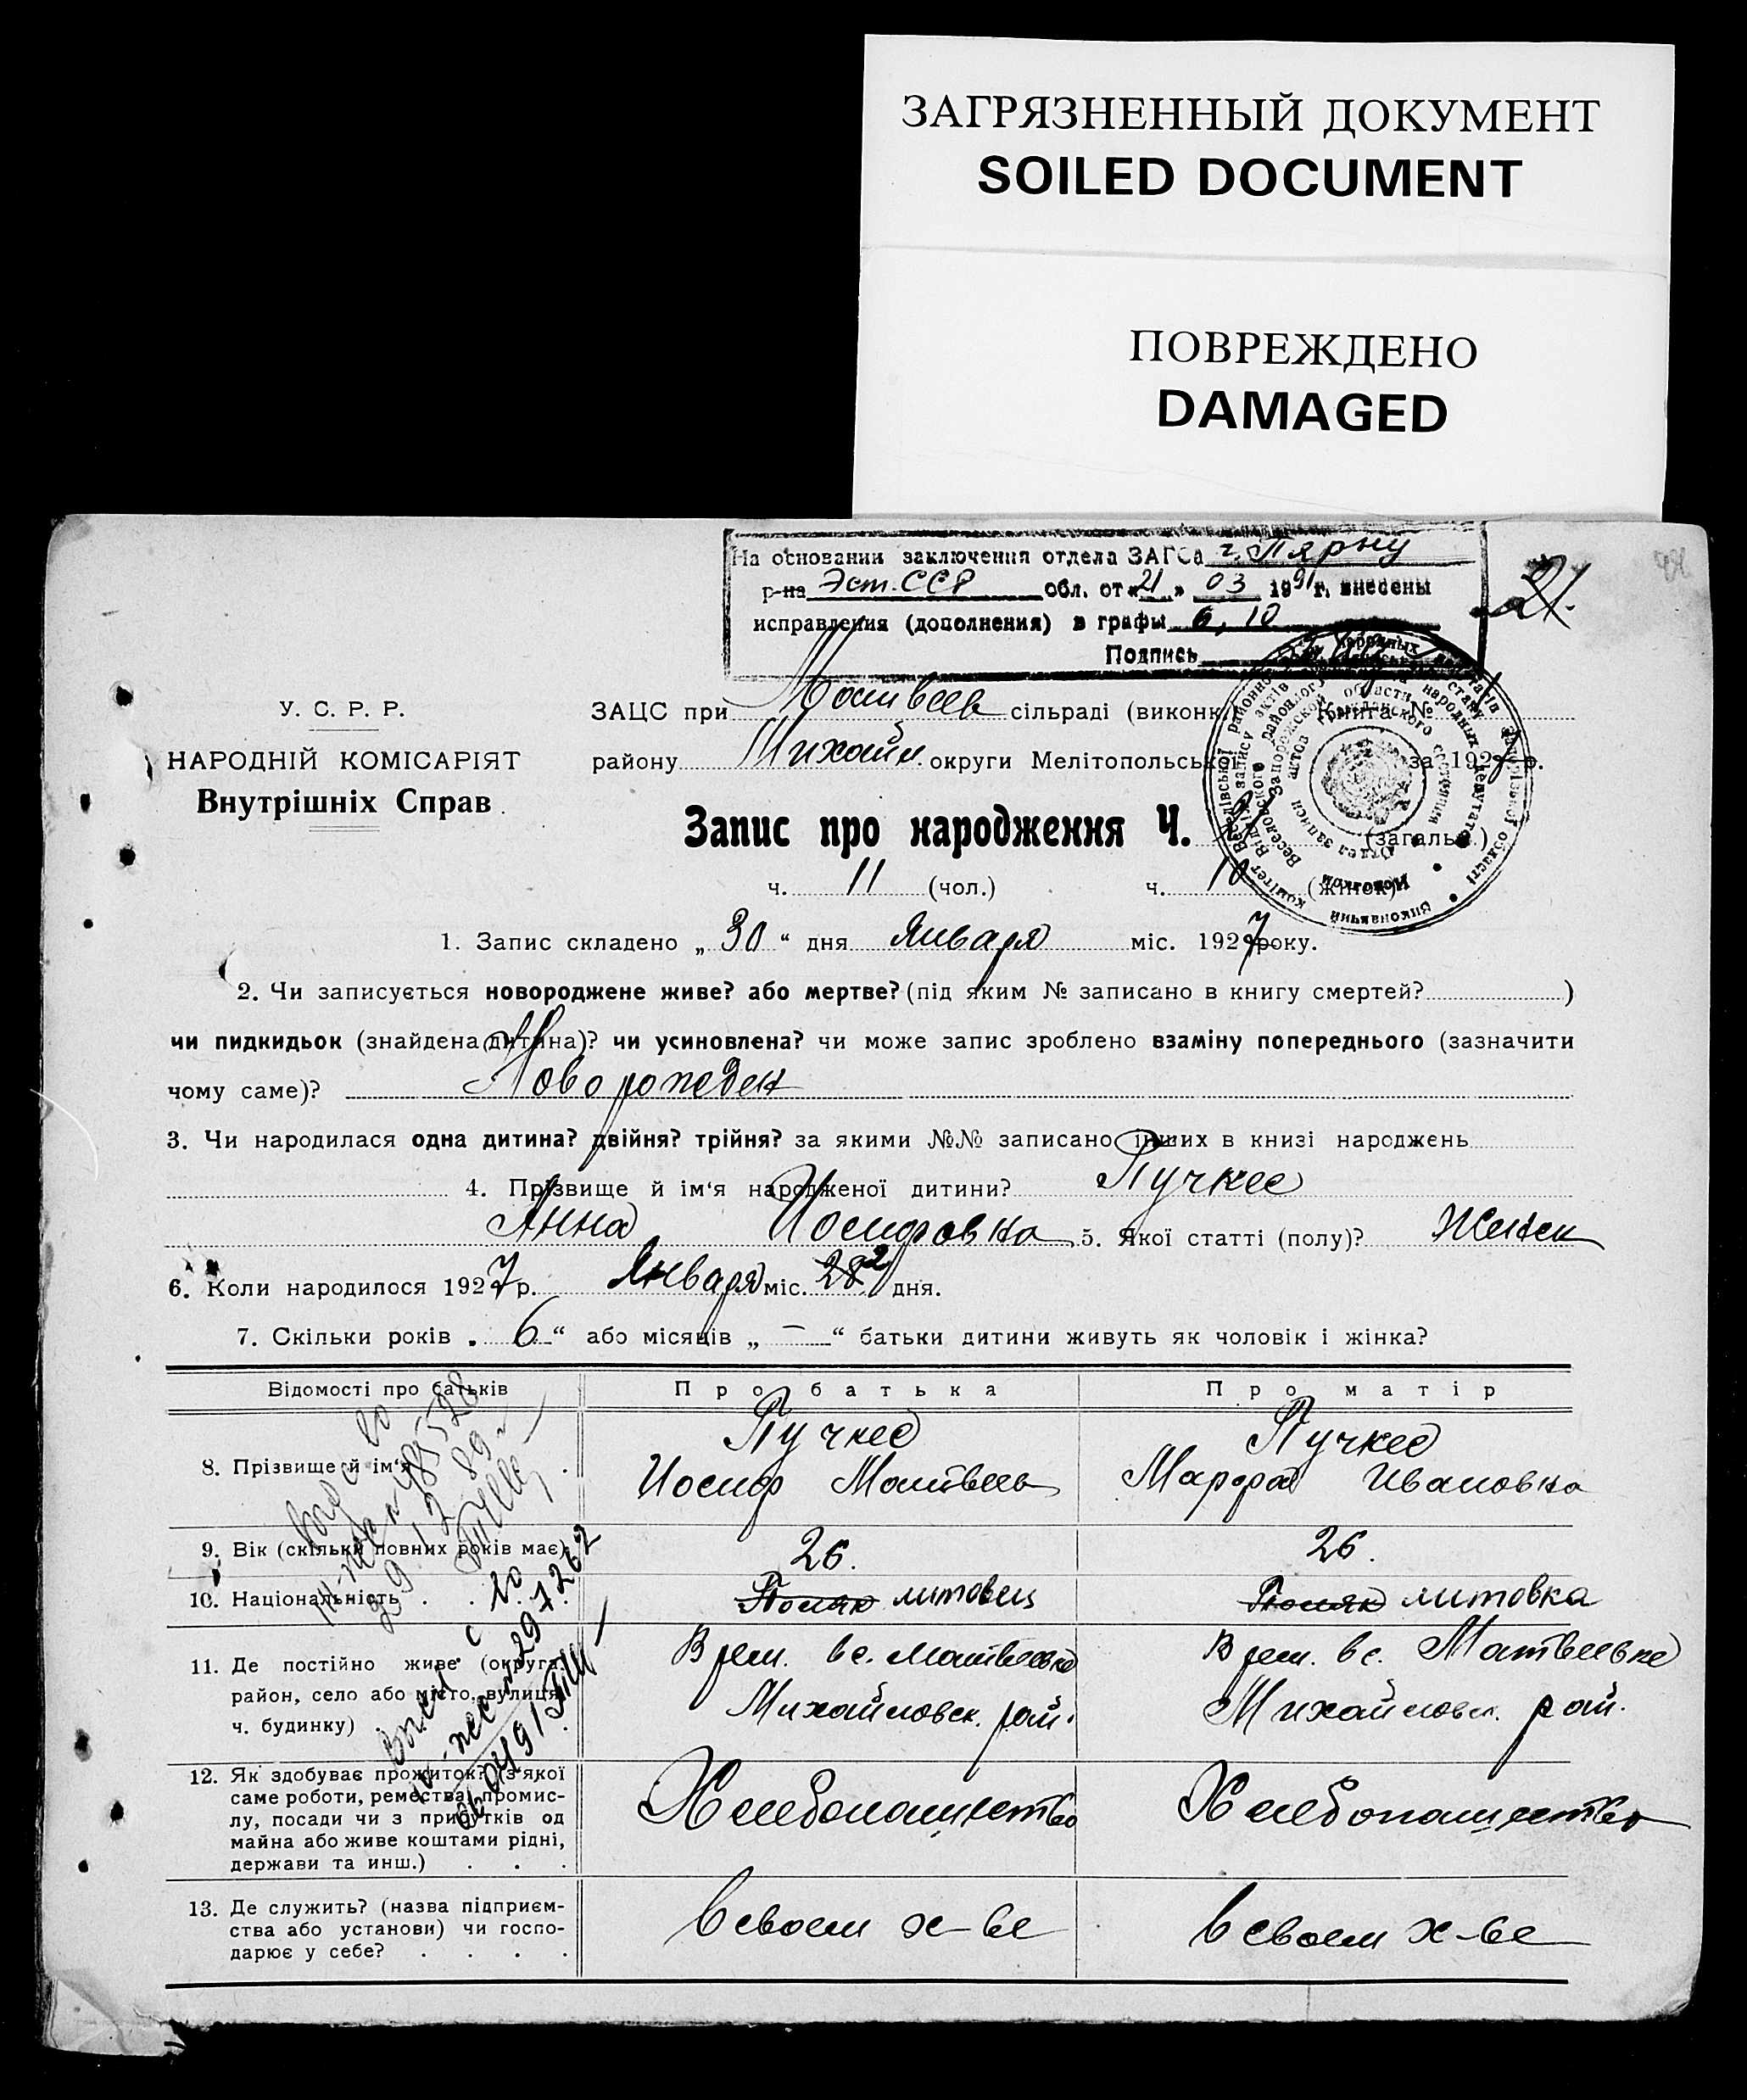 ЗАГРЯЗНЕННЫЙ ДОКУМЕНТ
SOILED DOCUMENT
ПОВРЕЖДЕНО
DAMAGED
На основании заключения отдела ЗАГСа г. Пярну
р-на Эст. ССР обл. от «21» 03 1991 г. внесены
исправления (дополнения) в графы 6, 10
Подпись
21.
У. С. Р. Р.
НАРОДНІЙ КОМІСАРІЯТ
Внутрішніх Справ.
ЗАЦС при Матвеев сільраді (виконк.) Книга №
району Михайл. округи Мелітопольської за 1927 р.
Запис про народження Ч. 21 (загальн.)
ч. 11 (чол.) ч. 10 (жінок)
1. Запис складено „ 30 “ дня Января міс. 1927 року.
2. Чи записується новороджене живе? або мертве? (під яким № записано в книгу смертей? )
чи пидкидьок (знайдена дитина)? чи усиновлена? чи може запис зроблено взаміну попереднього (зазначити
чому саме)? Новорожден
3. Чи народилася одна дитина? двійня? трійня? за якими №№ записано інших в книзі народжень
4. Прізвище й ім'я народженої дитини? Пучкес
Анна Иосифовна 5. Якої статті (полу)? Женск
6. Коли народилося 1927 р. Января міс. 28 2 дня.
7. Скільки років „ 6 “ або місяців „ — “ батьки дитини живуть як чоловік і жінка?
Відомості про батьків Про батька Про матір
8. Прізвище й ім'я . Пучкес Пучкес
Иосиф Матвеев Марфа Ивановна
9. Вік (скільки повних років має) 26. 26.
10. Національність . . . Поляк литовец Поляк литовка
11. Де постійно живе (округа, Врем. в с. Матвеевке Врем. в с. Матвеевке
район, село або місто, вулиця, Михайловск. рай. Михайловск. рай.
ч. будинку) .
12. Як здобуває прожиток? (з якої
саме роботи, ремества, промис-
лу, посади чи з прибутків од Хлебопашество Хлебопашество
майна або живе коштами рідні,
держави та инш.) . . .
13. Де служить? (назва підприєм-
ства або установи) чи госпо- в своем х-ве в своем х-ве
дарює у себе? . . . .